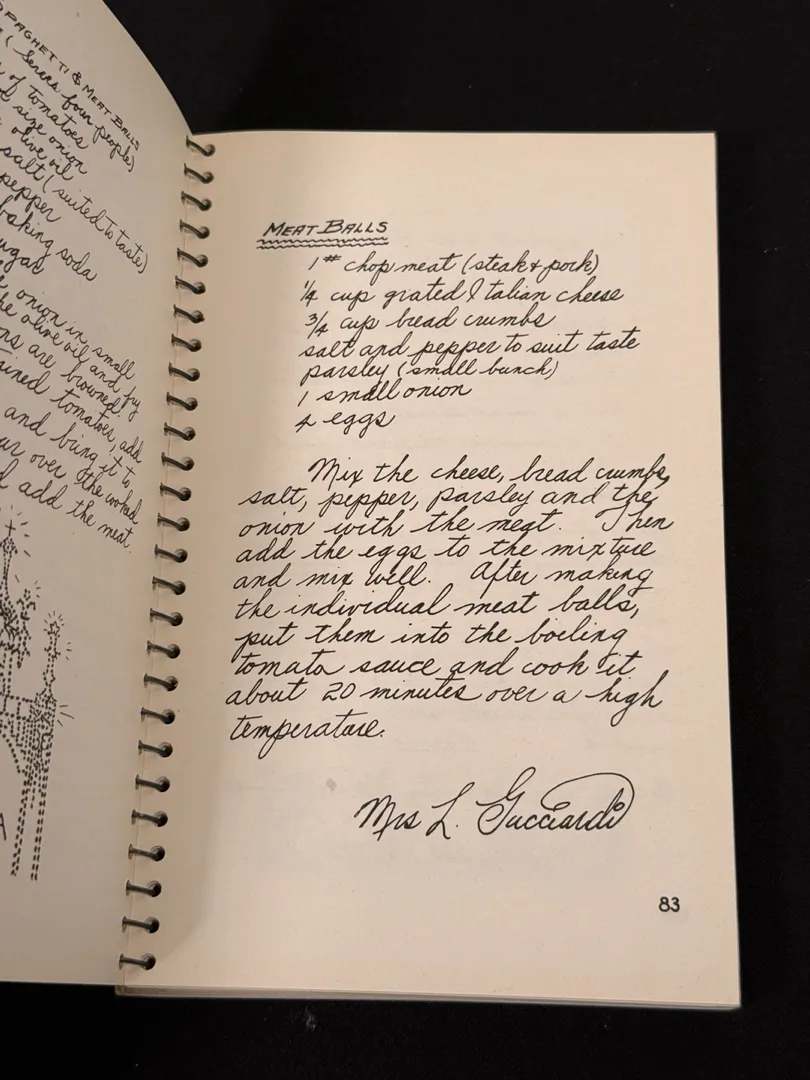 SPAGHETTI & MEAT BALLS
(Serves four people)
of tomatoes
size onion
olive oil
salt (suited to taste)
pepper
baking soda
sugar
onion in small
the olive oil and fry
are browned.
tomatoes, add
and bring it to
over the cooked
add the meat
MEAT BALLS
1# chop meat (steak & pork)
1/4 cup grated Italian cheese
3/4 cup bread crumbs
salt and pepper to suit taste
parsley (small bunch)
1 small onion
4 eggs
Mix the cheese, bread crumbs,
salt, pepper, parsley and the
onion with the meat. Then
add the eggs to the mixture
and mix well. After making
the individual meat balls,
put them into the boiling
tomato sauce and cook it
about 20 minutes over a high
temperature.
Mrs L. Gucciardi
83